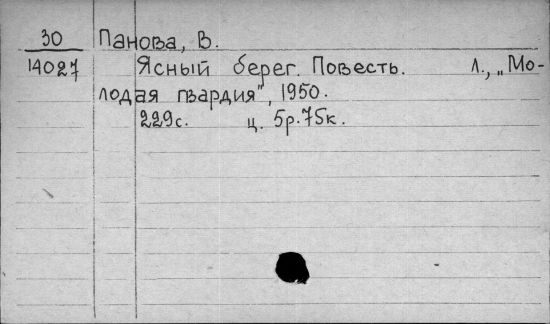 30 Панова, В.
14027 Ясный берег. Повесть. Л., „Мо-
лодая гвардия", 1950.
229с. ц. 5р.75к.